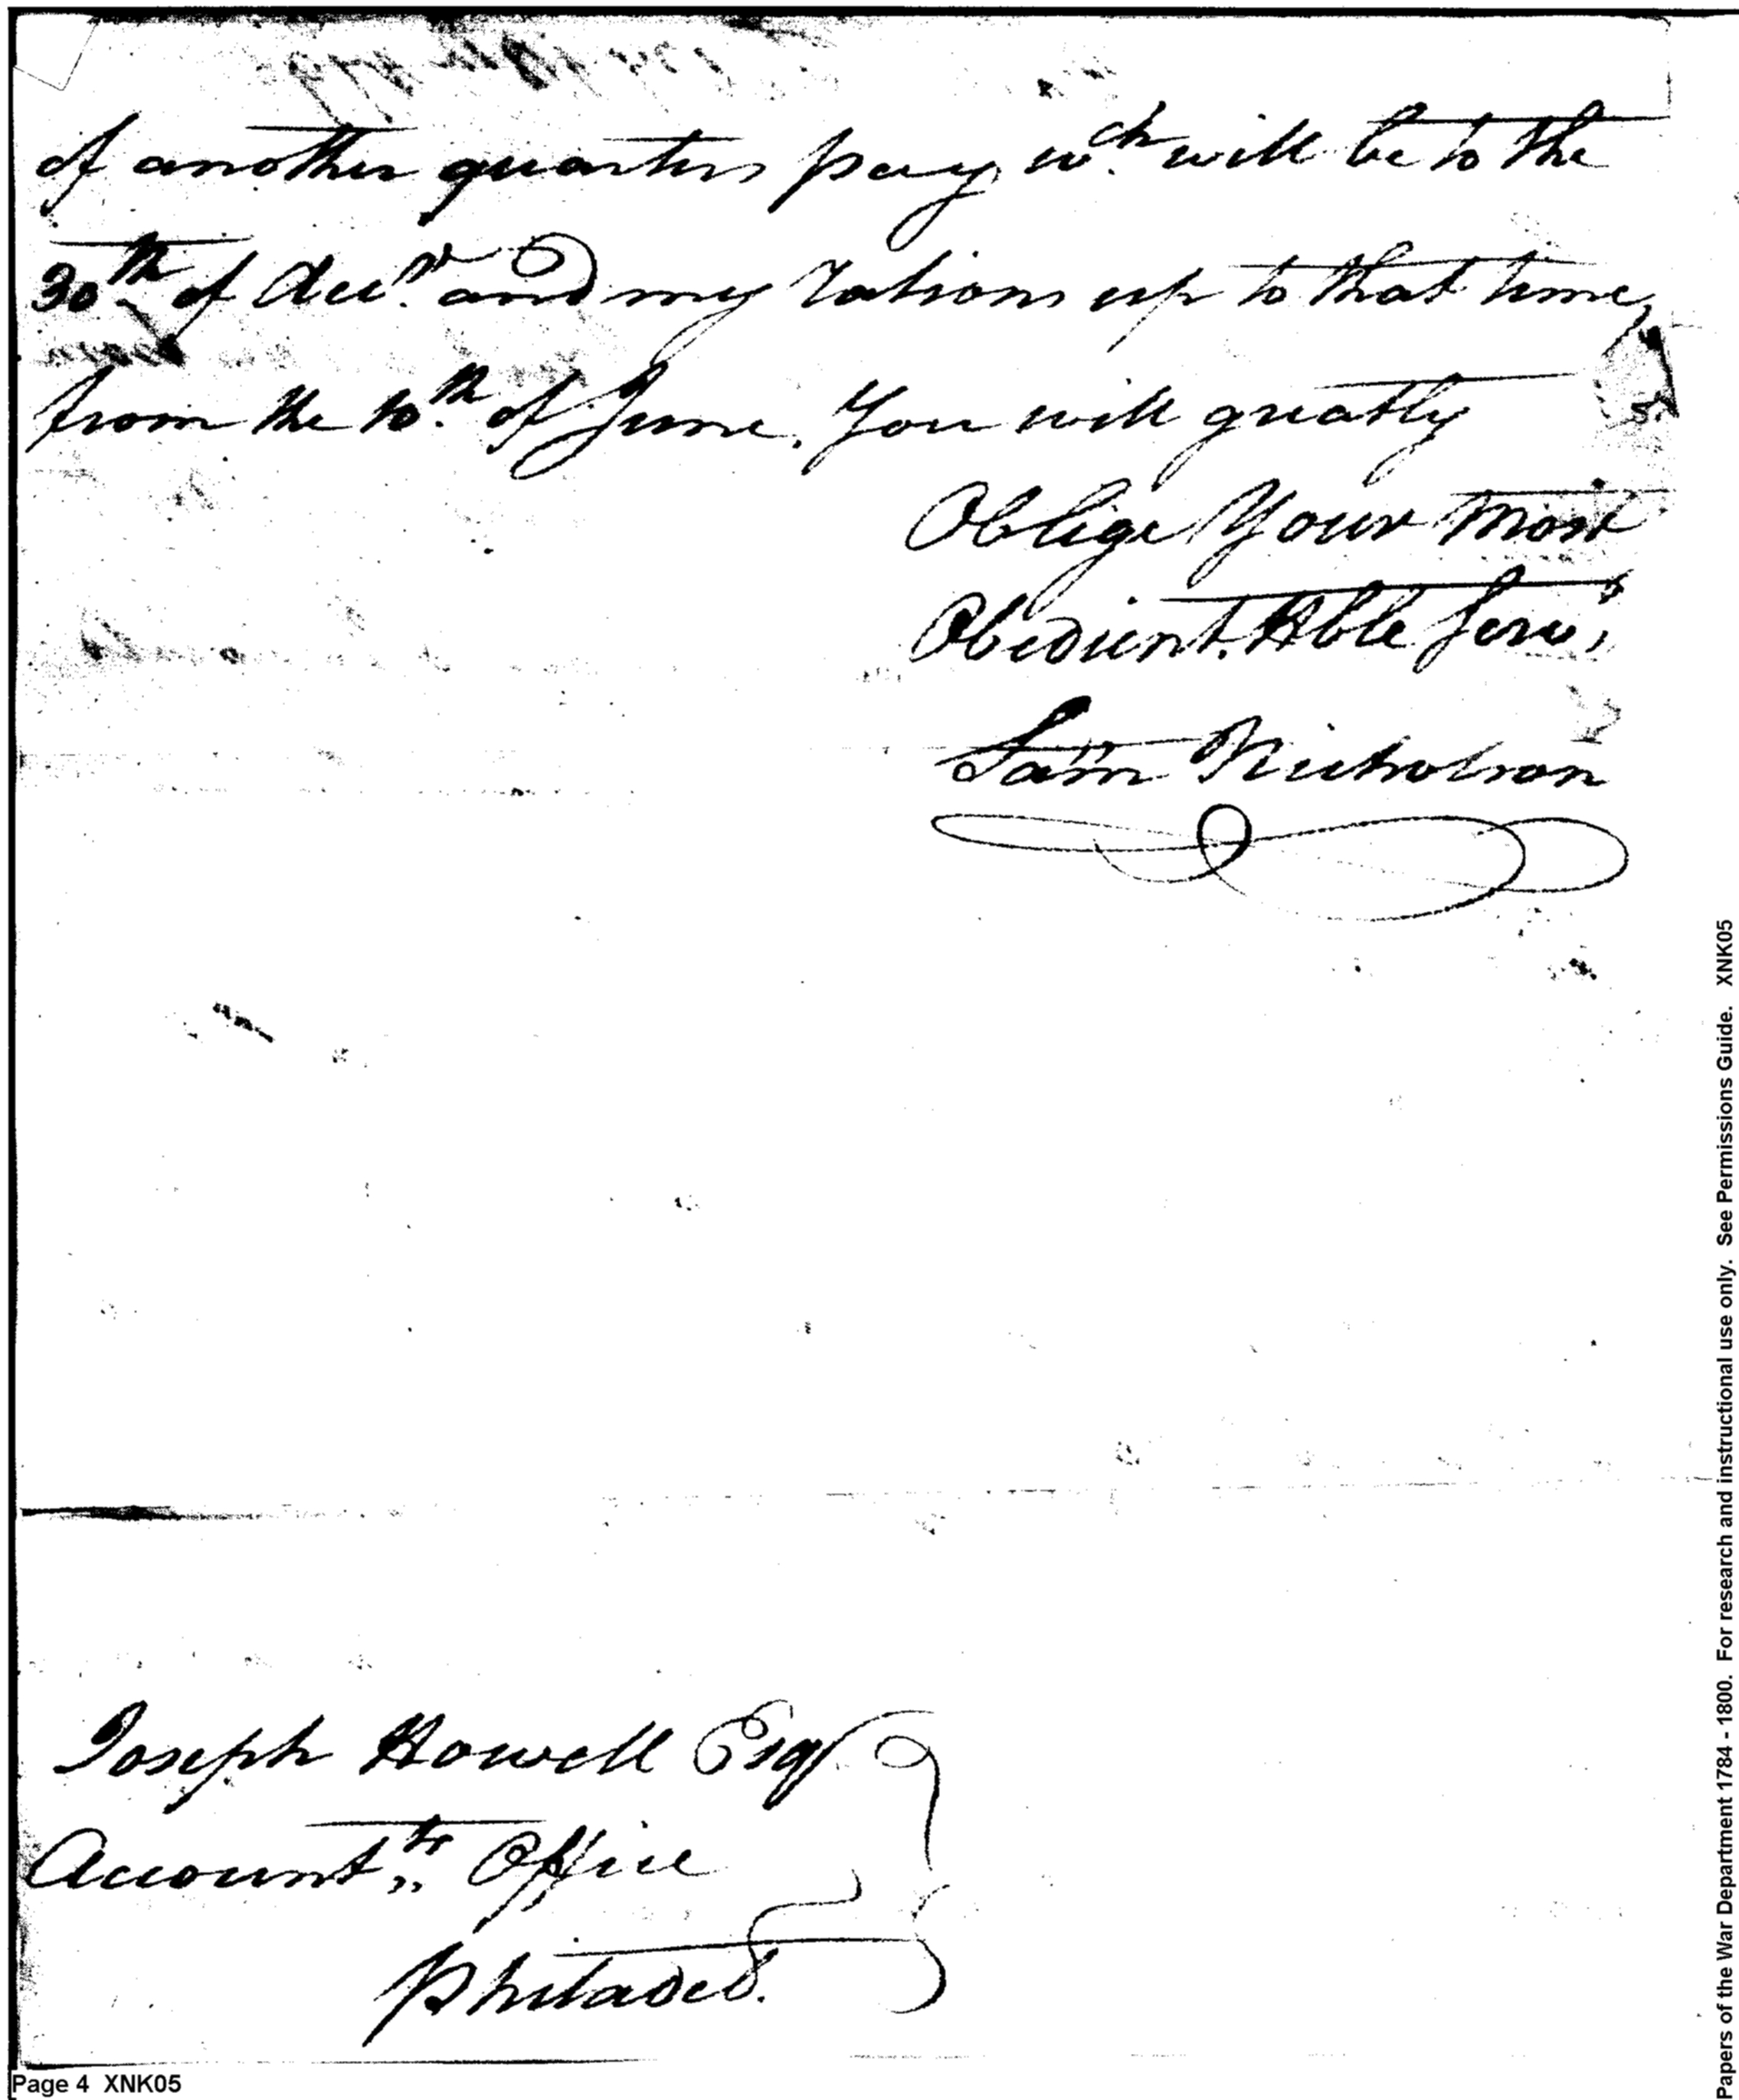 of another quarters pay, wch. will be to the
30th. of Decr. and my rations up to that time,
from the 10th. of June. You will greatly
Oblige Your most
Obedient. Hble Servt,
Sam Nicholson
Joseph Howell Esqr
Accountts. Office
Philadel.
Page 4 XNK05
Papers of the War Department 1784 - 1800. For research and instructional use only. See Permissions Guide. XNK05